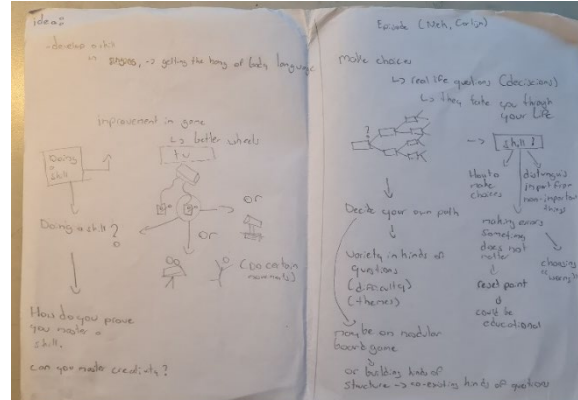 idea:
- develop a skill
in BASICS, -> getting the hang of body language
Improvement in game
↳ better wheels
Doing a skill
tv
Doing a skill?
or
or
(Do certain movements)
How do you prove
you master a
skill.
can you master creativity?
Episode (
make choices
↳ real life questions (
↳ they take you through
your Life
?
-> skill?
How to
make
choices
important from
non-important
things
making errors
something
does not
matter
reset point
could be
educational
choosing
"wrong"
Decide your own path
Variety in kinds of
questions
(difficulty)
(themes)
maybe an modular
board game
or building kinds of
structure -> co-existing kinds of questions